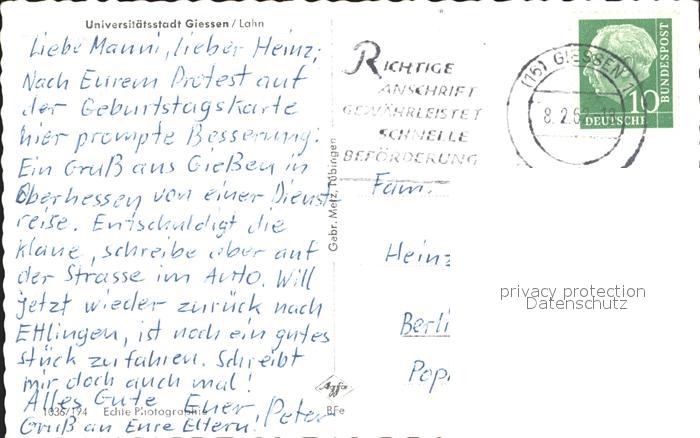 Universitätsstadt Giessen / Lahn
Liebe Manni, lieber Heinz;
Nach Eurem Protest auf
der Geburtstagskarte
hier prompte Besserung:
Ein Gruß aus Gießen in
Oberhessen von einer Dienst
reise. Entschuldigt die
Klaue, schreibe aber auf
der Strasse im Auto. Will
jetzt wieder zurück nach
Ettlingen, ist noch ein gutes
Stück zu fahren. Schreibt
mir doch auch mal!
Alles Gute Euer Peter
Gruß an Eure Eltern!
1036/194 Echte Photographie
Gebr. Metz, Tübingen
Agfa
BFe
RICHTIGE
ANSCHRIFT
GEWÄHRLEISTET
SCHNELLE
BEFÖRDERUNG
(16) GIESSEN 1
8. 2.
10
DEUTSCHE
BUNDESPOST
Fam.
Heinz
Berli
Pop
privacy protection
Datenschutz